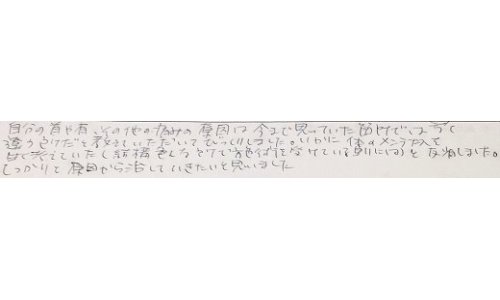 自分の首や肩、その他の痛みの原因は今まで思っていた箇所ではなく
違う所だと教えていただいてびっくりしました。いかに体のメンテナンスを
甘く考えていたし 結構きしろ を受けている割には)と反省しました。
しっかりと原因から治していきたいと思いました